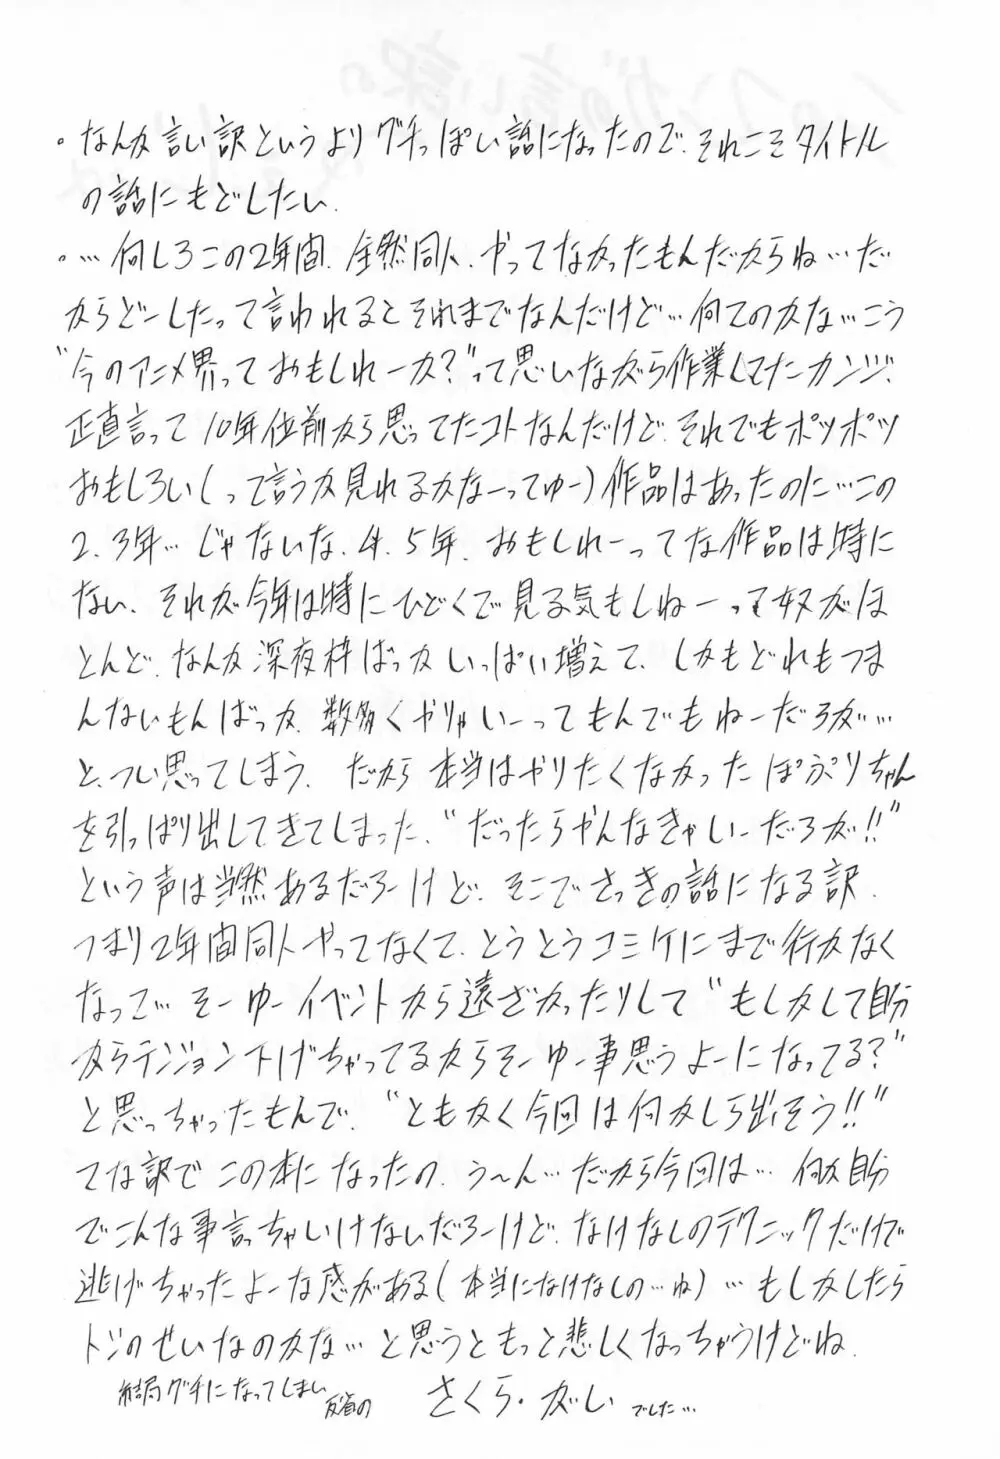 ・なんか言い訳というよりグチっぽい話になったので、それこそタイトル
の話にもどしたい.
・…何しろこの2年間、全然同人、やってなかったもんだからね…だ
からどーしたって言われるとそれまでなんだけど…何てのかな…こう
"今のアニメ界っておもしれーか?"って思いながら作業してたカンジ.
正直言って10年位前から思ってたコトなんだけど、それでもポツポツ
おもしろい(って言うか見れるかなーってゆー)作品はあったのに…この
2、3年…じゃないな、4、5年、おもしれーってな作品は特に
ない、それが今年は特にひどくて見る気もしねーって奴がほ
とんど、なんか深夜枠ばっかいっぱい増えて、しかもどれもつま
んないもんばっか、数多くやりゃいーってもんでもねーだろが…
と、つい思ってしまう. だから本当はやりたくなかったぽぷりちゃん
を引っぱり出してきてしまった、"だったらやんなきゃいーだろが!!"
という声は当然あるだろーけど、そこでさっきの話になる訳.
つまり2年間同人やってなくて、とうとうコミケにまで行かなく
なって…そーゆーイベントから遠ざかったりして"もしかして自分
からテンション下げちゃってるからそーゆー事思うよーになってる?"
と思っちゃったもんで、"ともかく今回は何かしら出そう!!"
てな訳でこの本になったの、う〜ん…だから今回は…何か自分
でこんな事言っちゃいけないだろーけど、なけなしのテクニックだけで
逃げちゃったよーな感がある(本当になけなしの…ね)…もしかしたら
トシのせいなのかな…と思うともっと悲しくなっちゃうけどね.
結局グチになってしまい
反省の さくら・がい でした…